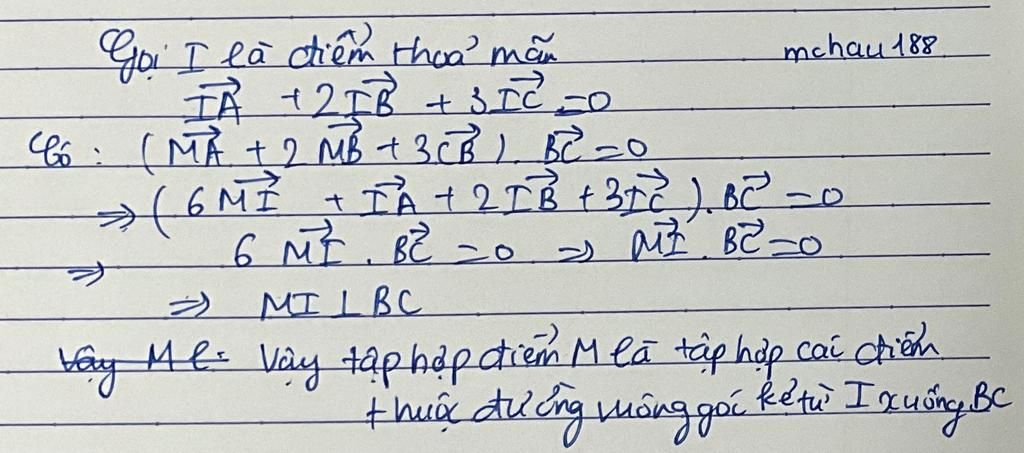 Gọi I là điểm thoả mãn mchau188
$\overrightarrow{IA} + 2\overrightarrow{IB} + 3\overrightarrow{IC} = 0$
Có : $(\overrightarrow{MA} + 2\overrightarrow{MB} + 3\overrightarrow{CB}).\overrightarrow{BC} = 0$
$\Rightarrow (6\overrightarrow{MI} + \overrightarrow{IA} + 2\overrightarrow{IB} + 3\overrightarrow{IC}).\overrightarrow{BC} = 0$
$\Rightarrow 6\overrightarrow{MI}.\overrightarrow{BC} = 0 \Rightarrow \overrightarrow{MI}.\overrightarrow{BC} = 0$
$\Rightarrow MI \perp BC$
~~Vậy M l=~~ Vậy tập hợp điểm M là tập hợp các điểm
thuộc đường vuông góc kẻ từ I xuống BC